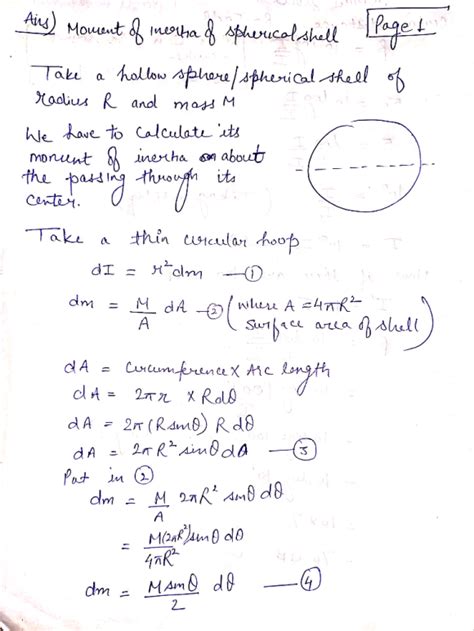 Ans) Moment of inertia of spherical shell
Page 1
Take a hollow sphere/spherical shell of
radius R and mass M
We have to calculate its
moment of inertia on about
the passing through its
center.
Take a thin circular hoop
dI = r²dm —①
dm = M/A dA —② (where A = 4πR² surface area of shell)
dA = Circumference × Arc length
dA = 2πr × Rdθ
dA = 2π(R sinθ) R dθ
dA = 2πR² sinθ dθ —③
Put in ②
dm = M/A 2πR² sinθ dθ
= M(2πR²) sinθ dθ / 4πR²
dm = M sinθ / 2 dθ —④